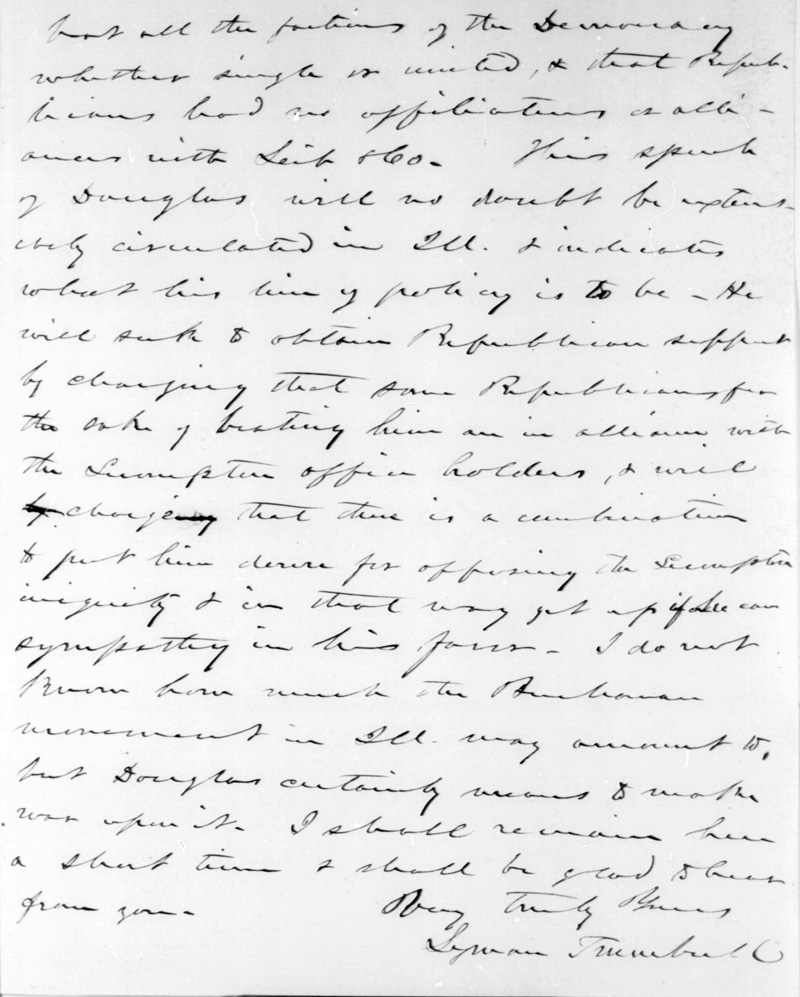 beat all the factions of the Democracy
whether single or united, & that Repub-
licans had no affiliations or alli-
ances with Leib & Co. This speech
of Douglas will no doubt be extens-
ively circulated in Ill. & indicates
what his line of policy is to be – He
will seek to obtain Republican support
by charging that some Republicans for
the sake of beating him are in alliance with
the Lecompton office holders, & will
by chargeing that there is a combination
to put him down for opposing the Lecompton
iniquity & in that way get up if he can
sympathy in his favor – I do not
know how much the Buchanan
movement in Ill. may amount to,
but Douglas certainly means to make
war upon it – I shall remain here
a short time & shall be glad to hear
from you – Very truly Yours
Lyman Trumbull